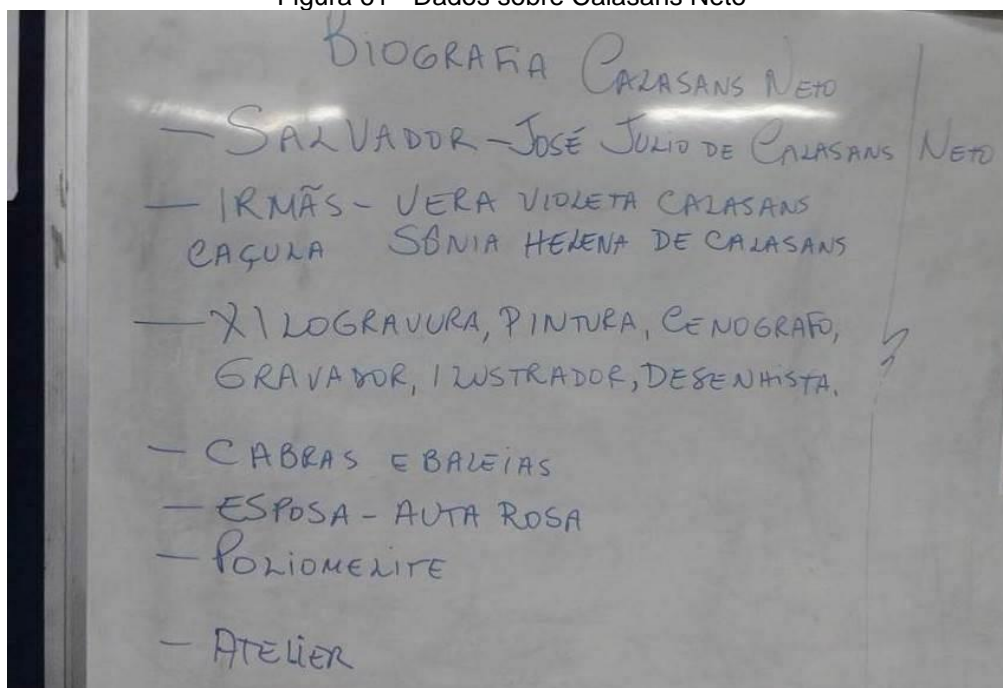 Figura 61 - Dados sobre Calasans Neto
BIOGRAFIA CALASANS NETO
- SALVADOR - JOSÉ JULIO DE CALASANS NETO
- IRMÃS - VERA VIOLETA CALASANS
CAÇULA SÔNIA HELENA DE CALASANS
- XILOGRAVURA, PINTURA, CENOGRAFO,
GRAVADOR, ILUSTRADOR, DESENHISTA.
- CABRAS E BALEIAS
- ESPOSA - AUTA ROSA
- POLIOMELITE
- ATELIER